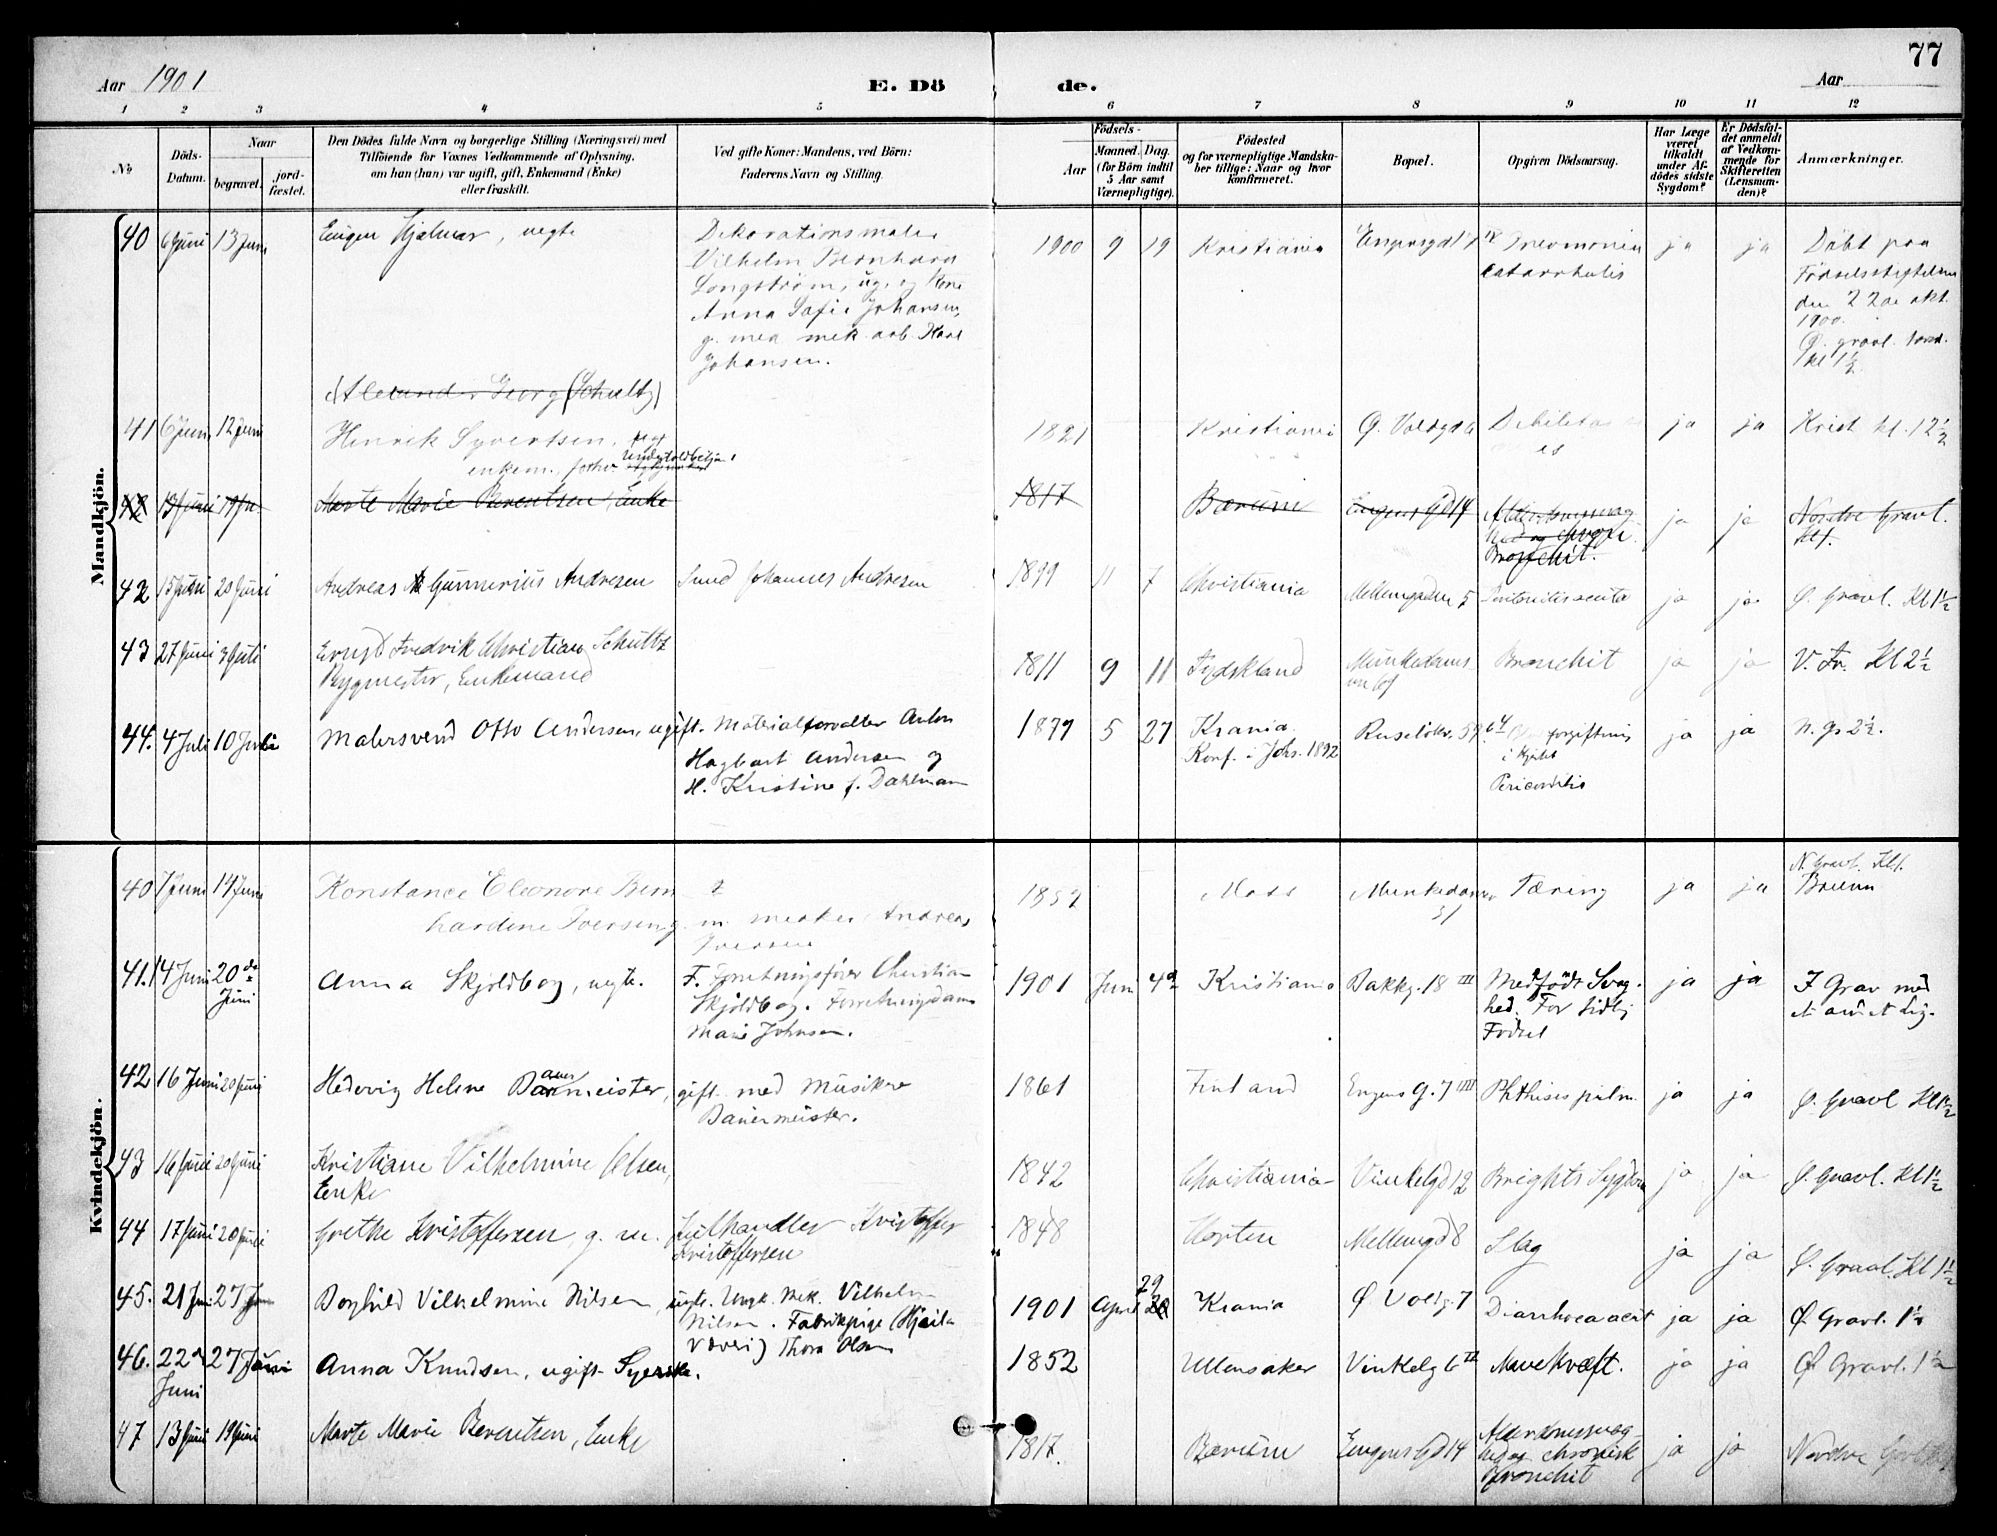 77
Aar 1901 E. Dö de. Aar
1 2 3 4 5 6 7 8 9 10 11 12
No
Döds-Datum.
Naar
begravet. jordfæstet.
Den Dödes fulde Navn og borgerlige Stilling (Næringsvei) med
Tilföiende for Voxnes Vedkommende af Oplysning,
om han (hun) var ugift, gift, Enkemand (Enke)
eller fraskilt.
Ved gifte Koner: Mandens, ved Börn:
Faderens Navn og Stilling.
Födsels-
Aar Maaned. Dag.
(for Börn indtil
5 Aar samt
Værnepligtige).
Födested
og for værnepligtige Mandska-
ber tillige: Naar og hvor
konfirmeret.
Bopæl.
Opgiven Dödsaarsag.
Har Læge
været
tilkaldt
under Af-
dödes sidste
Sygdom?
Er Dödsfal-
det anmeldt
af Vedkom-
mende for
Skifteretten
(Lensman-
den)?
Anmærkninger.
Mandkjön.
40 6 Juni 13 Juni Eugen Hjalmar, uegte
Dekorationsmaler
Vilhelm Bernhard
Longström, ug. og Kone
Anna Sofie Johansen,
g. med mek. arb. Karl
Johansen.
1900 9 19 Kristiania Pneumonia
catarrhalis
ja ja
Döbt paa
Födselsstiftelsen
den 22de okt.
1900.
Ø. gravl.
kl 1½
Georg (Schultz)
41 6 Juni 12 Juni Henrik Syvertsen,
enkem. forhv.
1821 Kristiania Ø. Voldgd Debilitas
ja ja Krist kl. 12½
13 Juni 19 Ju. Marte Marie Berentsen, Enke
1817 Bærum Engens Gd 14
Alderdomssvag-
hed og chron.
Bronchit.
ja ja Nordre Gravl.
Kl 1.
42 15 Juni 20 Juni Andreas Gunnerius Andresen Smed Johannes Andresen
1899 11 7 Christiania Mellemgaden 5 Peritonitis acuta ja ja Ø. Gravl. Kl 1½
43 27 Juni 3 Juli Ernst Fredrik Christian Schultz
Bygmester, Enkemand
1811 9 11 Tydskland Munkedams
Bronchit ja ja V. Fr. Kl 2½
44. 4 Juli 10 Juli Malersvend Otto Andersen, ugift. Materialforvalter Anton
Hagbart Andersen og
H. Kristine f. Dahlman
1877 5 27 Krania
Konf. i Johs. 1892
Ruselökv.
forgiftning
i Hjertet
Pericarditis
ja ja N. G. 2½.
Kvindekjön.
40 7 Juni 14 Juni Konstance Eleonore Bern
hardine Iversen, g. m. Andreas
Iversen
1852 Moss Munkedamsv
51
Tæring ja ja
N. Gravl. Kl 1.
41. 14 Juni 20 de
Juni
Anna Skjoldbog, uegte.
F. Forretningsförer Christian
Skjoldbog. Forretningsdame
Marie Johnsen.
1901 Juni 4de Kristiania Bakkg. 18 III
Medfödt Svag-
hed. For tidlig
Födsel
ja ja
I Grav med
et andet Lig.
42 16 Juni 20 Juni Hedevig Helene Bauermeister, gift med Musiker
Bauermeister.
1861 Finland Engens g. 7 IIII Phthisis pulm. ja ja Ø. Gravl Kl 1½
43 16 Juni 20 Juni Kristiane Vilhelmine Olsen,
Enke
1842 Christiania Vinkelgd 12 Brights Sygdom ja ja Ø. Gravl. Kl 1½
44 17 Juni 20 Juni Grethe Kristoffersen, g. m. Kristoffer
Kristoffersen
1848 Horten Mellemgd 8 Slag ja ja Ø. Gravl. Kl 1½
45. 21 Juni 27 Juni Borghild Vilhelmine Nilsen, uegte. Ungk. Mek. Vilhelm
Nilsen. Fabrikpige (Hjula
Væveri) Thora Olsen
1901 April 29 Krania Ø Voldg. 7 Diarrhoea acut ja ja Ø. Gravl. 1½
46. 22de
Juni
27 Juni Anna Knudsen, ugift Syerske.
1852 Ullensaker Vinkelg 6 II Mavekræft. ja ja Ø Gravl. 1½
47 13 Juni 19 Juni Marte Marie Berentsen, Enke
1817. Bærum Engens Gd 14
Alderdomssvag-
hed og chronisk
Bronchit
ja ja Nordre